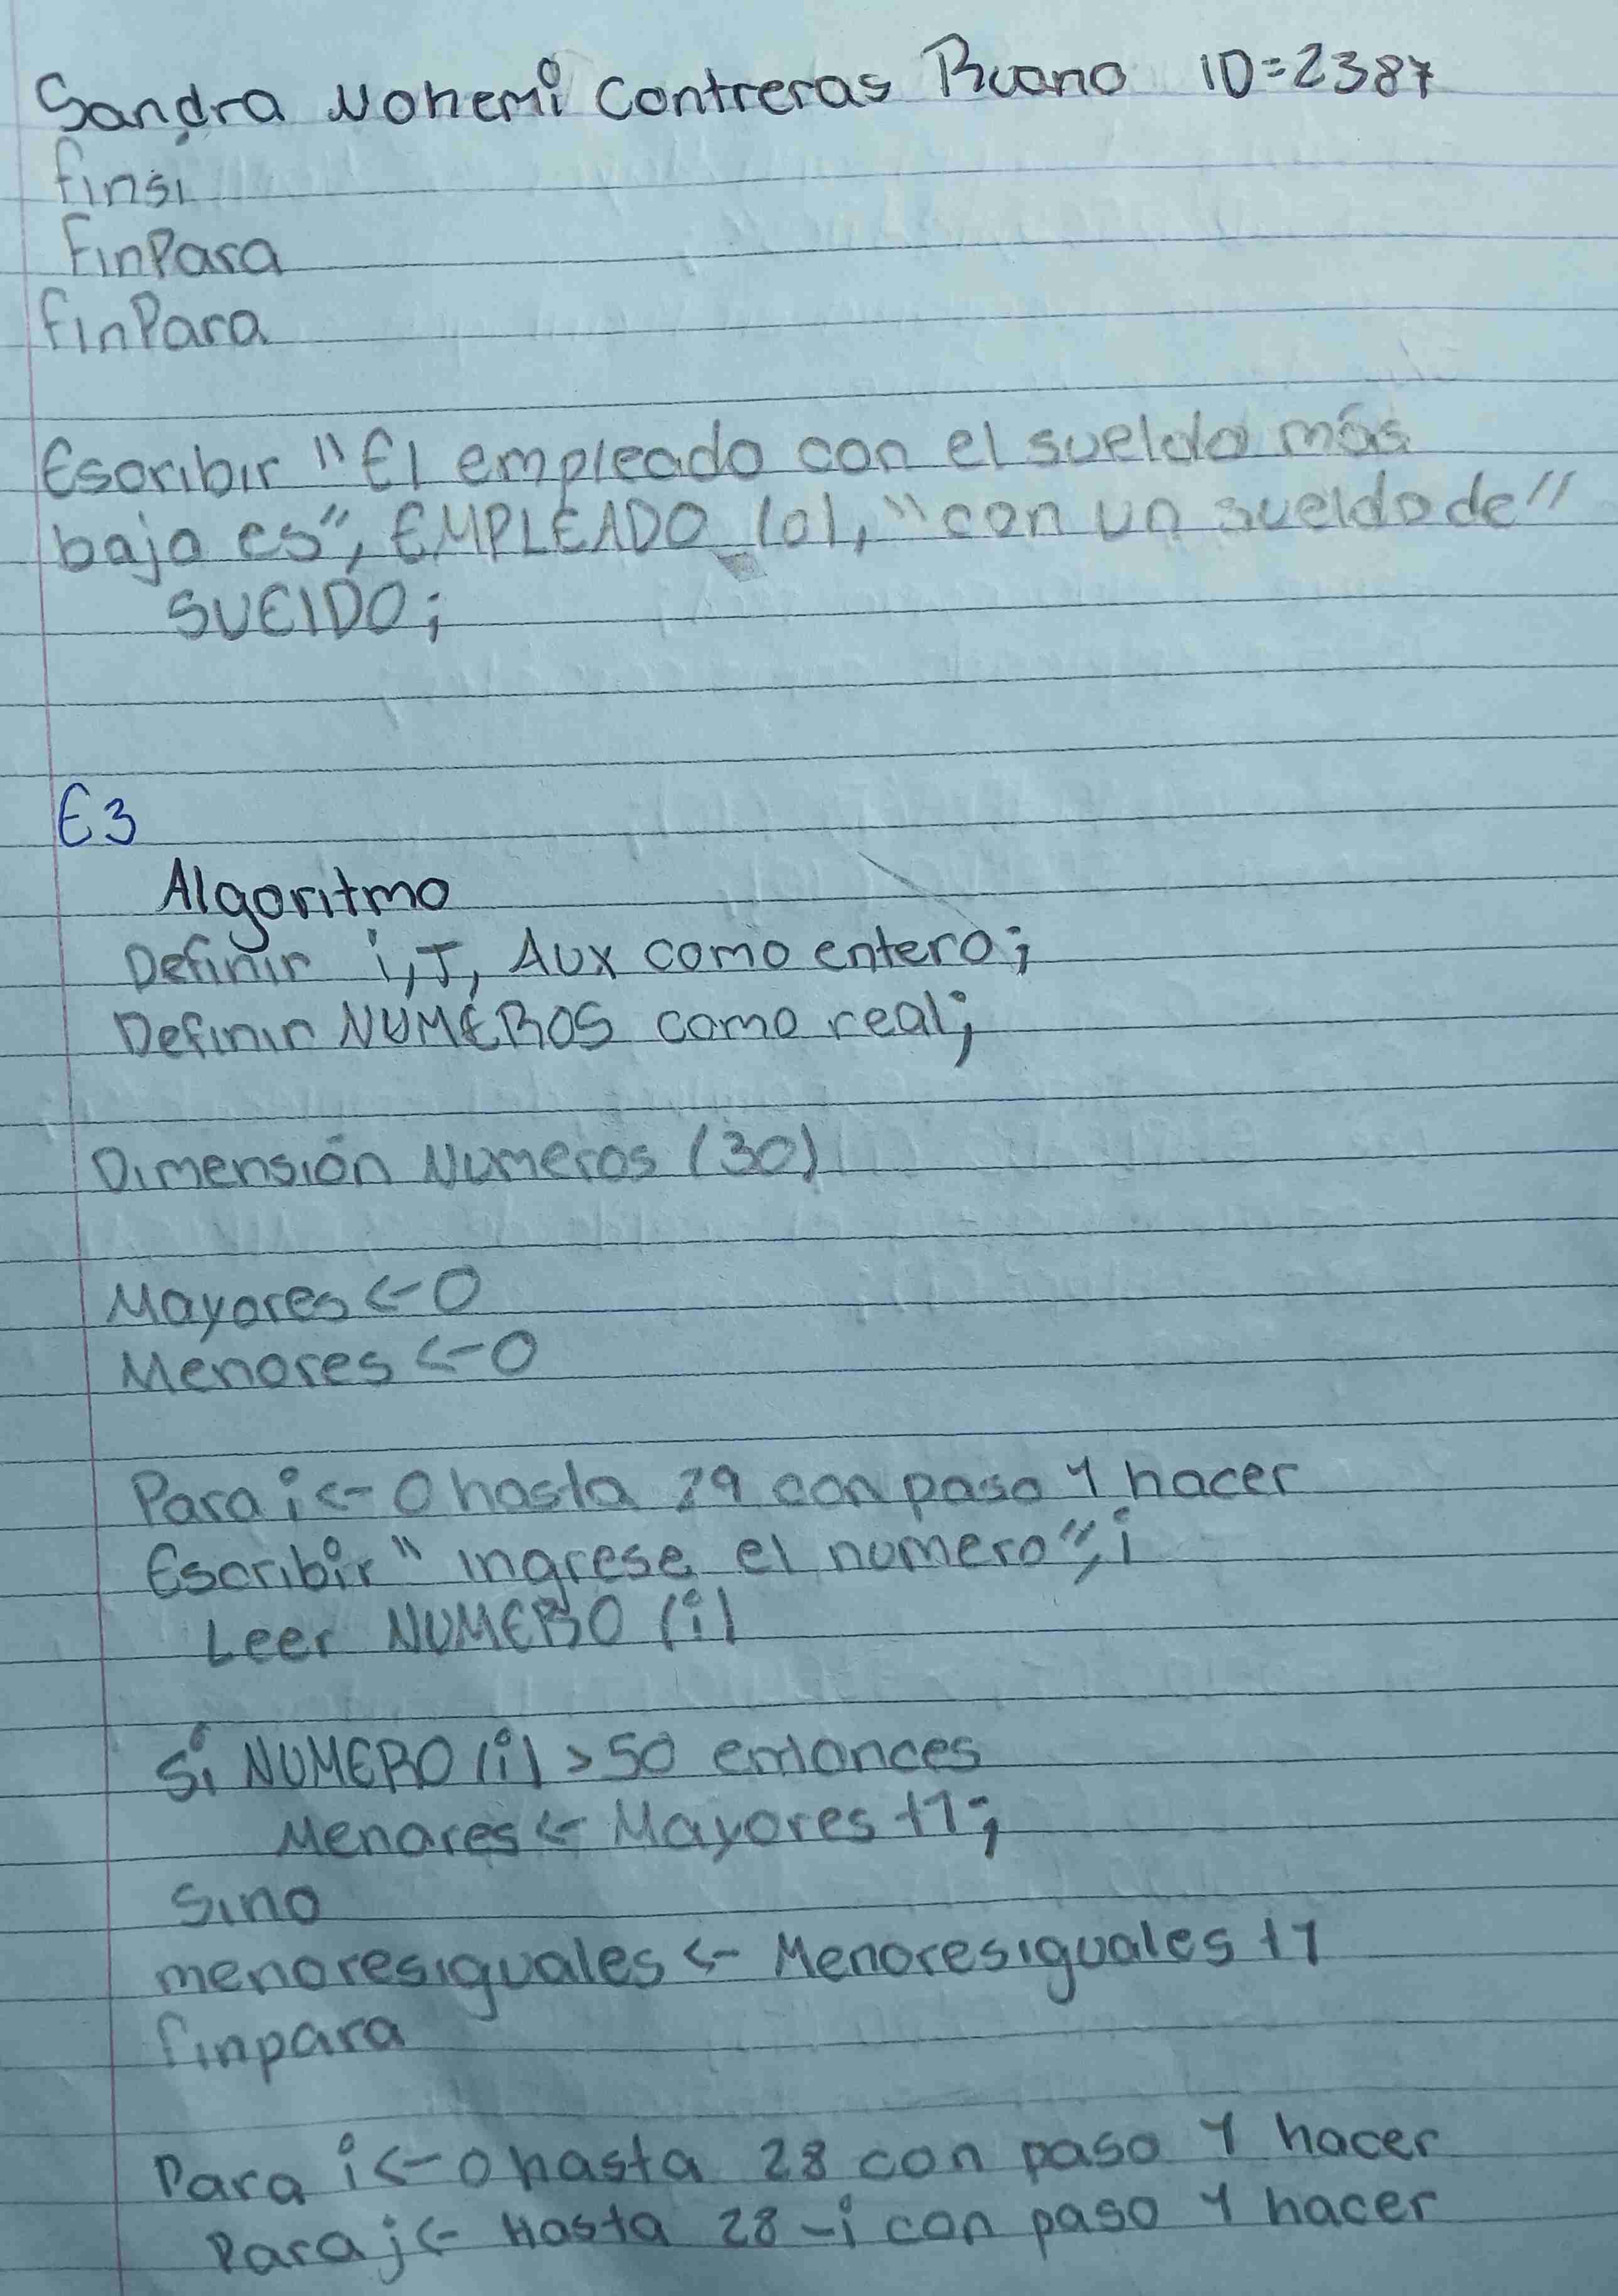 Sandra Nohemi Contreras Ruano ID=2387
finsi
FinPara
finPara
Escribir "El empleado con el sueldo más
bajo es", EMPLEADO (0), "con un sueldo de"
SUElDO;
E3
Algoritmo
Definir i, J, Aux como entero;
Definir NUMEROS como real;
Dimensión Numeros (30)
Mayores <- 0
Menores <- 0
Para i <- 0 hasta 29 con paso 1 hacer
Escribir "ingrese el numero", i
Leer NUMERO (i)
Si NUMERO (i) > 50 entonces
Menores <- Mayores +1;
Sino
menoresiguales <- Menoresiguales +1
finpara
Para i <- 0 hasta 28 con paso 1 hacer
Para j <- Hasta 28 - i con paso 1 hacer